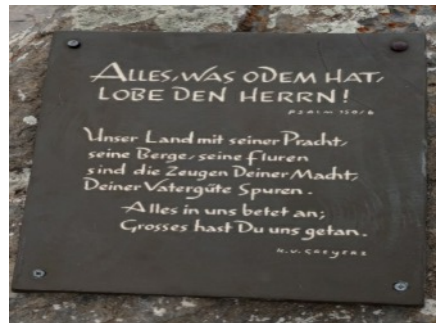 ALLES, WAS ODEM HAT,
LOBE DEN HERRN!
PSALM 150/6
Unser Land mit seiner Pracht,
seine Berge, seine Fluren
sind die Zeugen Deiner Macht,
Deiner Vatergüte Spuren.
Alles in uns betet an;
Grosses hast Du uns getan.
G. v. Greyerz